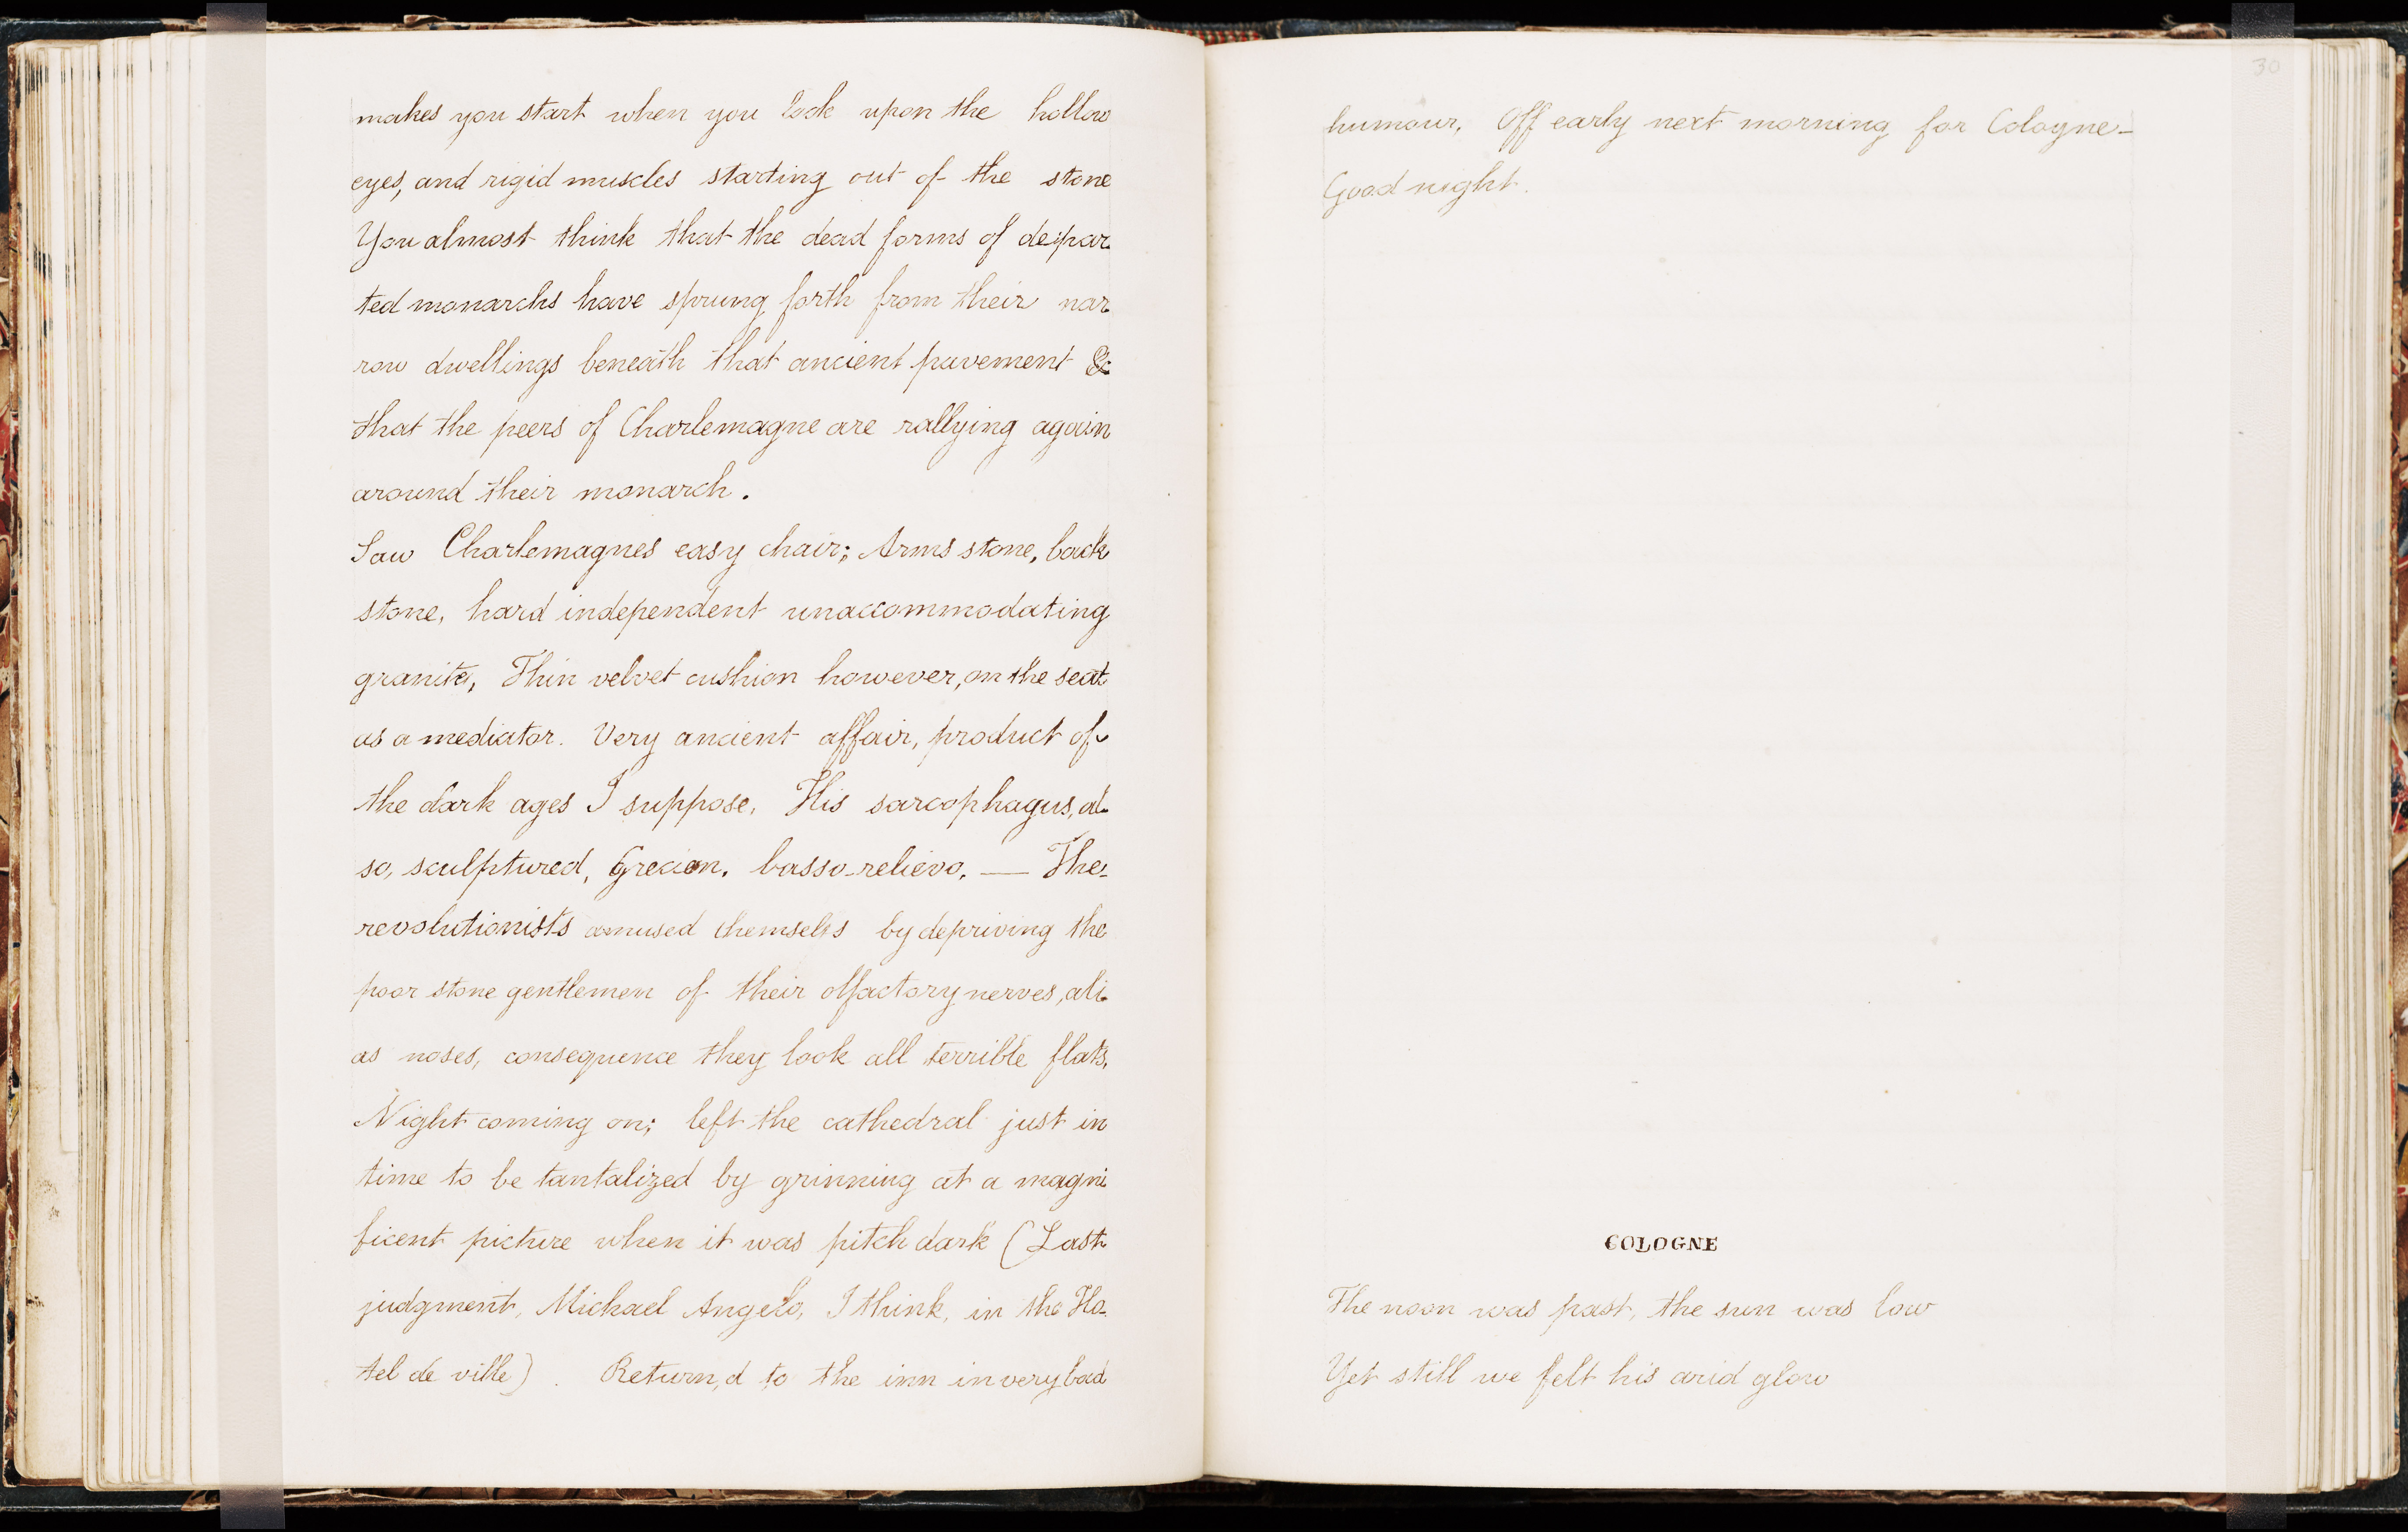 makes you start when you look upon the hollow
eyes, and rigid muscles starting out of the stone
You almost think that the dead forms of depar
ted monarchs have sprung forth from their nar
row dwellings beneath that ancient pavement &
that the peers of Charlemagne are rallying again
around their monarch.
Saw Charlemagnes easy chair; Arms stone, back
stone, hard independent unaccommodating
granite, Thin velvet cushion however, on the seat
as a mediator. Very ancient affair, product of
the dark ages I suppose. His sarcophagus, al-
so, sculptured, Grecian. basso-relievo. — The
revolutionists amused themselvs by depriving the
poor stone gentlemen of their olfactory nerves, ali-
as noses, consequence they look all terrible flats.
Night coming on; left the cathedral just in
time to be tantalized by grinning at a magni
ficent picture when it was pitch dark (Last
judgment, Michael Angelo, I think, in the Ho-
tel de ville). Return,d to the inn in very bad
30
humour. Off early next morning for Cologne-
Good night.
COLOGNE
The noon was past, the sun was low
Yet still we felt his arid glow